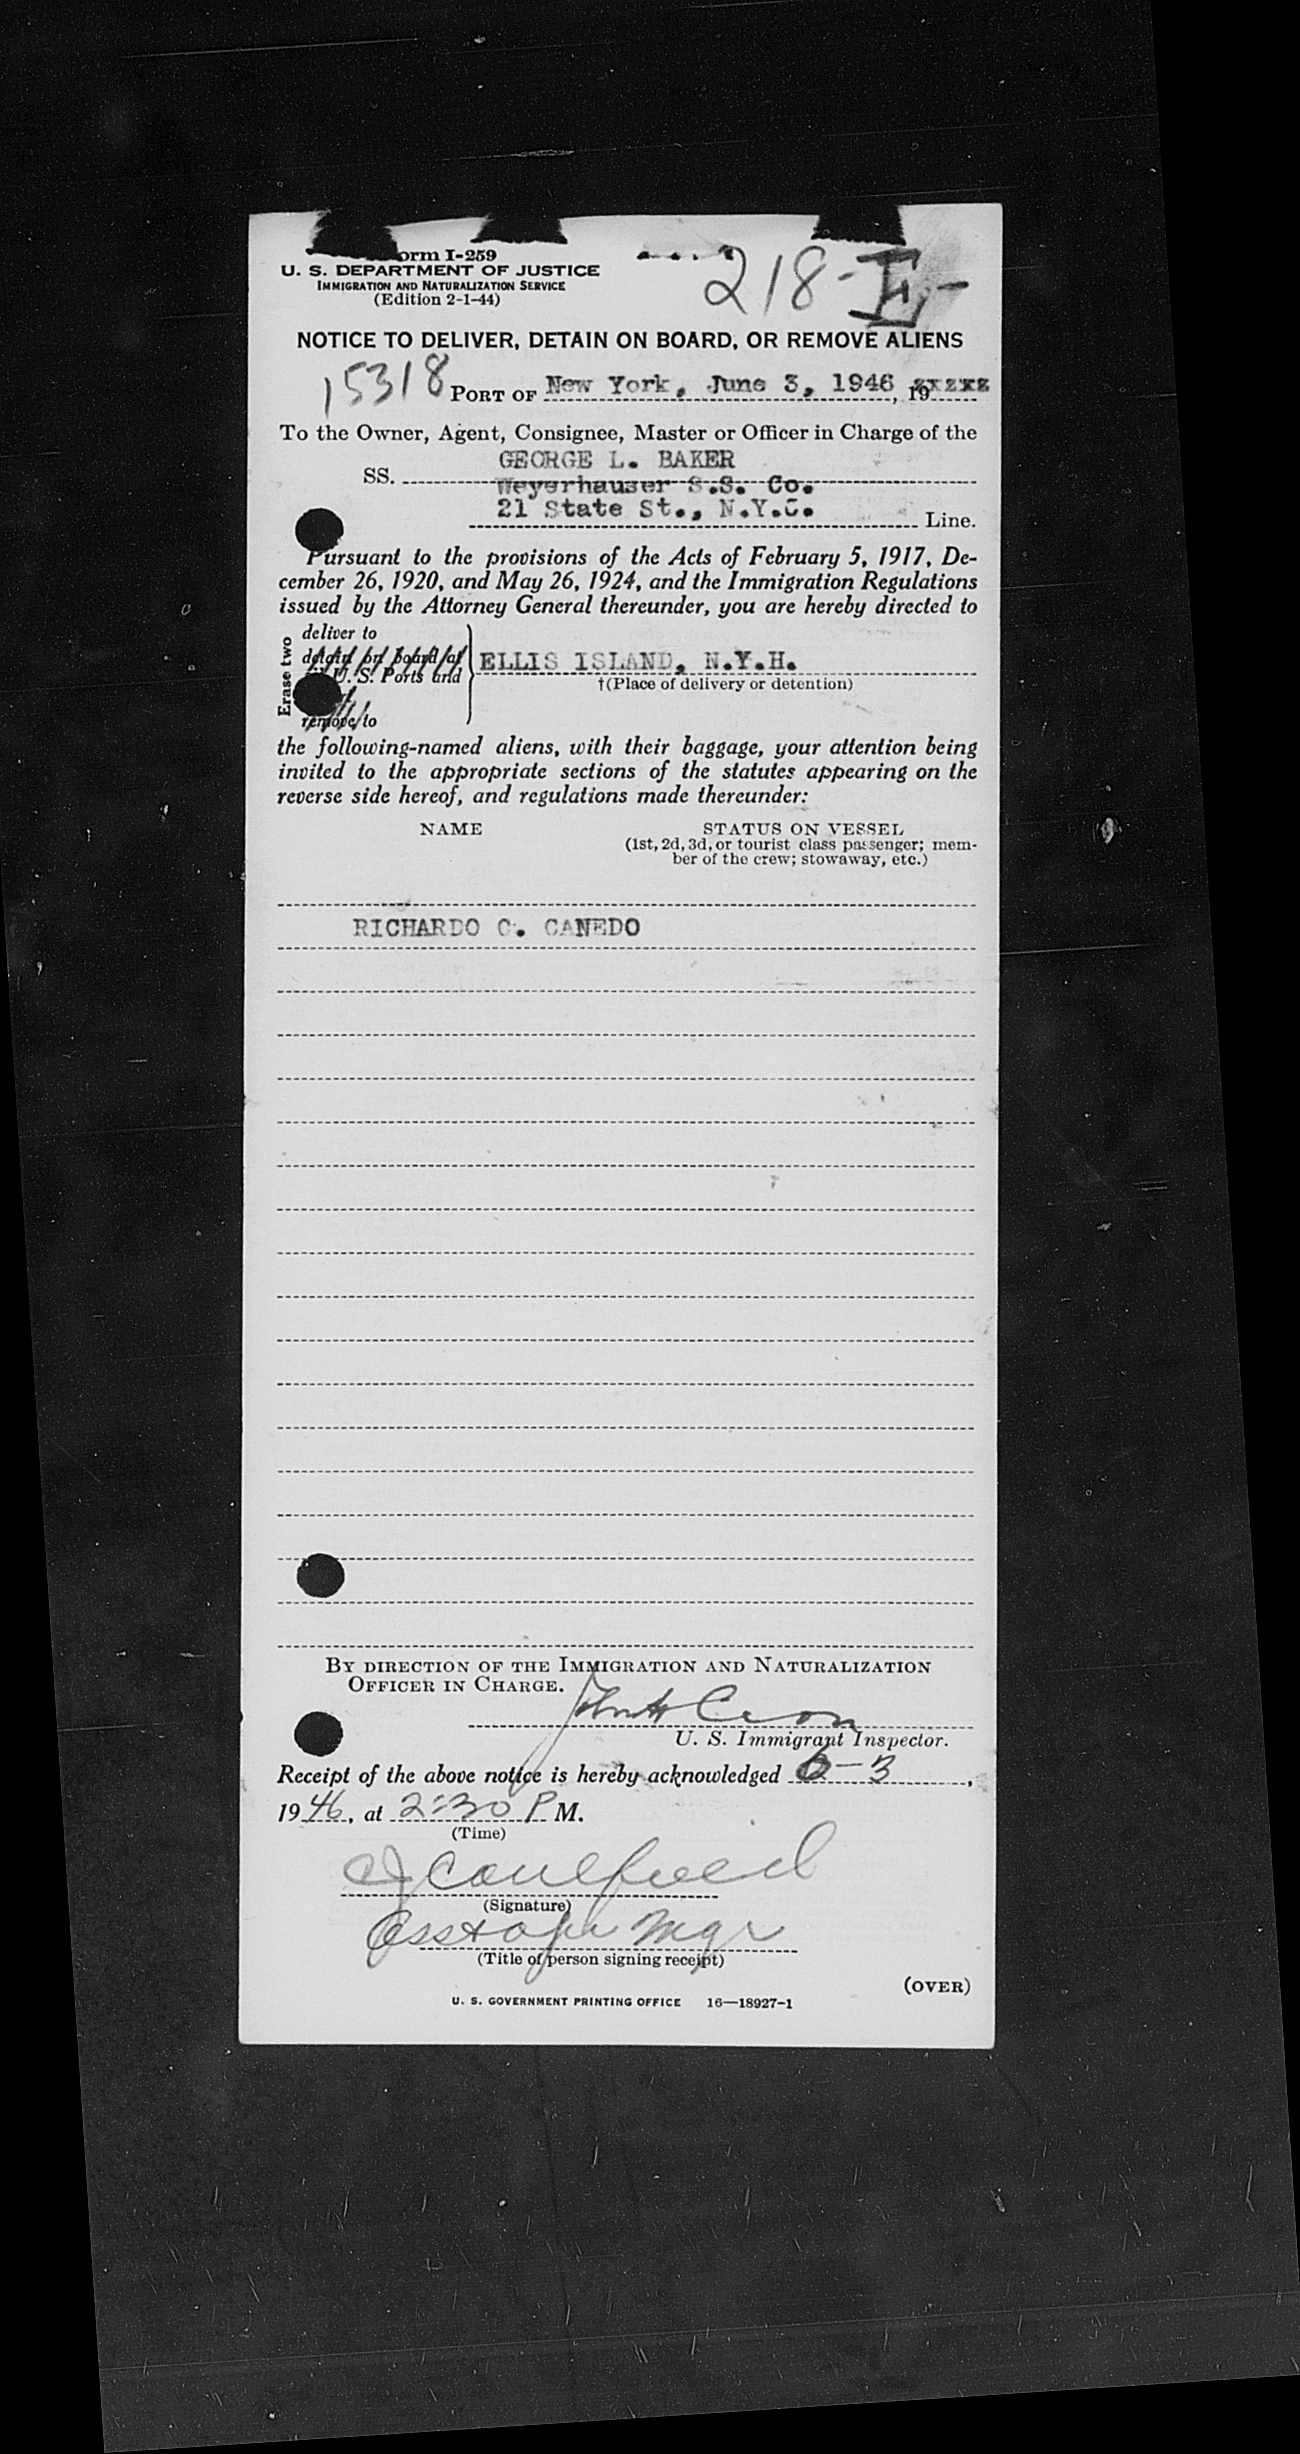 orm I-259
U. S. DEPARTMENT OF JUSTICE
IMMIGRATION AND NATURALIZATION SERVICE
(Edition 2-1-44)
218-E-
NOTICE TO DELIVER, DETAIN ON BOARD, OR REMOVE ALIENS
15318 PORT OF New York, June 3, 1946, 19 zxzxz
To the Owner, Agent, Consignee, Master or Officer in Charge of the
GEORGE L. BAKER
SS. Weyerhauser S.S. Co.
21 State St., N.Y.C. Line.
Pursuant to the provisions of the Acts of February 5, 1917, De-
cember 26, 1920, and May 26, 1924, and the Immigration Regulations
issued by the Attorney General thereunder, you are hereby directed to
Erase two
deliver to
detain on board at
U. S. Ports and
remove to
ELLIS ISLAND, N.Y.H.
†(Place of delivery or detention)
the following-named aliens, with their baggage, your attention being
invited to the appropriate sections of the statutes appearing on the
reverse side hereof, and regulations made thereunder:
NAME STATUS ON VESSEL
(1st, 2d, 3d, or tourist class passenger; mem-
ber of the crew; stowaway, etc.)
RICHARDO C. CANEDO
BY DIRECTION OF THE IMMIGRATION AND NATURALIZATION
OFFICER IN CHARGE.
U. S. Immigrant Inspector.
Receipt of the above notice is hereby acknowledged 6-3,
1946, at 2:30 P M.
(Time)
CJ Caulfield
(Signature)
Asst Oper Mgr
(Title of person signing receipt)
(OVER)
U. S. GOVERNMENT PRINTING OFFICE 16—18927-1